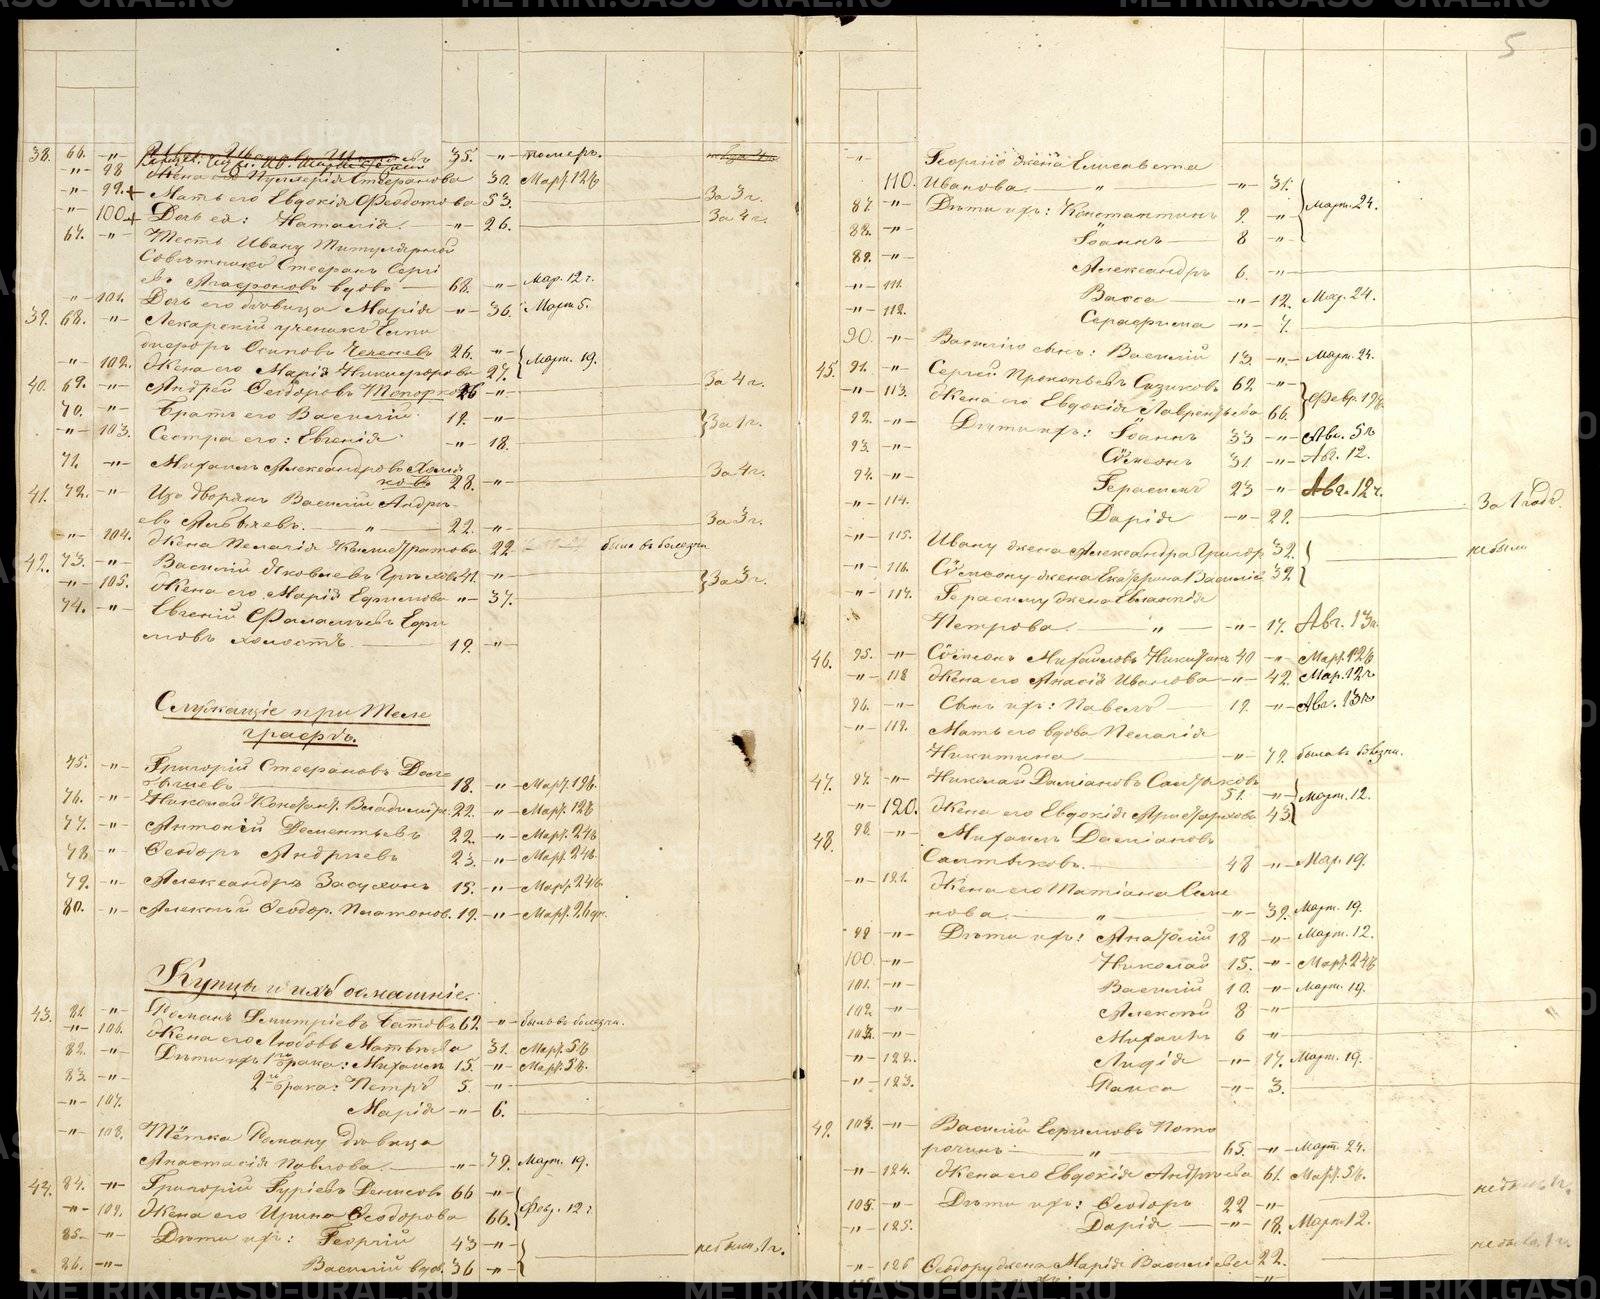 38. 66. -"- 35. -"- померъ.
-"- 98 Жена его Пулхерія Стефанова 30. Март. 12 б
-"- 99. + Мать его Евдокія Феодотова 53. За 3 г.
-"- 100 + Дочь ея: Наталія. -"- 26. За 4 г.
67. -"- Тесть Ивану Титулярный
Совѣтникъ Стефанъ Сергі
евъ Агафоновъ вдовъ 68. -"- Мар. 12 г.
-"- 101. Дочь его дѣвица Марія -"- 36. Март. 5.
39. 68. -"- Лекарскій ученикъ Елпи
дифоръ Осиповъ 26. -"-
-"- 102. Жена его Марія Никифорова 27. Март. 19.
40. 69. -"- Андрей Феодоровъ 26 -"- За 4 г.
70. -"- Братъ его Василій 19. -"-
-"- 103. Сестра его: Евгенія -"- 18. За 1 г.
71. -"- Михаилъ Александровъ
28. -"- За 4 г.
41. 72. -"- Изъ дворянъ Василій Андре
евъ 22. -"- За 3 г.
-"- 104. Жена Пелагія Каллистратова 22 была въ болезни
42. 73. -"- Василій Яковлевъ 41. -"-
-"- 105. Жена его Марія Ефимова -"- 37. За 3 г.
74. -"- Евгеній Фалалѣевъ Ефи
мовъ холостъ. 19. -"-
Служащіе при Теле
графѣ.
75. -"- Григорій Стефановъ
18. -"- Март. 19 б.
76. -"- Николай Констант. Владимір. 22. -"- Март. 12 б
77. -"- Антоній Дементьевъ 22. -"- Март. 24 б
78 -"- Феодоръ Андреевъ 23. -"- Март. 24 б.
79. -"- Александръ Засухинъ 15. -"- Март. 24 б
80. -"- Алексѣй Феодор. Платонов. 19. -"- Март. 26
Купцы и ихъ домашніе.
43. 81. -"- Романъ Дмитріевъ Титовъ 62. -"- былъ въ болезни.
-"- 106. Жена его Любовь Матвѣева 31. Март. 5 б
82. -"- Дѣти ихъ 1го брака: Михаилъ 15. -"- Март. 5 б.
83. -"- 2го брака: Петръ 5. -"-
-"- 107. Марія -"- 6.
-"- 108. Тётка Роману дѣвица
Анастасія Павлова. -"- 79. Март. 19.
44. 84. -"- Григорій Гуріевъ Денисовъ 66 -"-
-"- 109. Жена его Ирина Феодорова 66. Фев. 12 г.
85. -"- Дѣти ихъ: Георгій 43 -"- не был. 1 г.
86. -"- Василій вдов. 36 -"-
5
-"- Георгію жена Елисавета
110. Иванова. -"- -"- 31.
87. -"- Дѣти ихъ: Константинъ 9. -"- Март. 24.
88. -"- Іоаннъ 8 -"-
89. -"- Александръ 6. -"-
-"- 111. Васса -"- 12. Мар. 24.
-"- 112. Серафима -"- 7.
90. -"- Василію сынъ: Василій 13. -"- Март. 24.
45. 91. -"- Сергей Прокопьевъ Сизиковъ 62. -"-
-"- 113. Жена его Евдокія Лаврентьева 66. Февр. 19 б.
92. -"- Дѣти ихъ: Іоаннъ 33 -"- Авг. 5 г
93. -"- Сѷмеонъ 31. -"- Авг. 12.
94. -"- Герасимъ 23 -"- Авг. 12 г.
-"- 114. Дарія -"- 29. За 1 годъ.
-"- 115. Ивану жена Александра Григор. 32.
-"- 116. Сѷмеону жена Екатерина Василіе 39. не были
-"- 117. Герасиму жена Евлампія
Петрова. -"- -"- 17. Авг. 13
46. 95. -"- Сѷмеонъ Михаиловъ Никитинъ 40 -"- Март. 12 б
-"- 118 Жена его Анисія Иванова -"- 42. Мар. 12 г
96. -"- Сынъ ихъ: Павелъ 19. -"- Авг. 13
-"- 119. Мать его вдова Пелагія
Никитина -"- 79. была въ болезни.
47. 97. -"- Николай Даміановъ Салтыковъ
51. -"- Март. 12.
-"- 120. Жена его Евдокія Аристархова 43
48. 98. -"- Михаилъ Даміановъ
Салтыковъ. 48 -"- Мар. 19.
-"- 121. Жена его Татіана Симе
нова. -"- -"- 39. Март. 19.
99 -"- Дѣти ихъ: Анатолій 18 -"- Март. 12.
100. -"- Николай 15. -"- Март. 24 б
101. -"- Василій 10. -"- Март. 19.
102. -"- Алексѣй 8 -"-
103. -"- Михаилъ 6 -"-
-"- 122. Лидія -"- 17. Март. 19.
-"- 123. Раиса -"- 3.
49. 103. -"- Василій Ефимовъ Пото
рочинъ. -"- 65. -"- Март. 24.
-"- 124. Жена его Евдокія Андреева 61. Март. 5 б.
105. -"- Дѣти ихъ: Феодоръ 22 -"- не был. 1 г.
-"- 125. Дарія -"- 18. Март. 12.
-"- 126 Феодору жена Марія Василіева 22. не была 1 г.